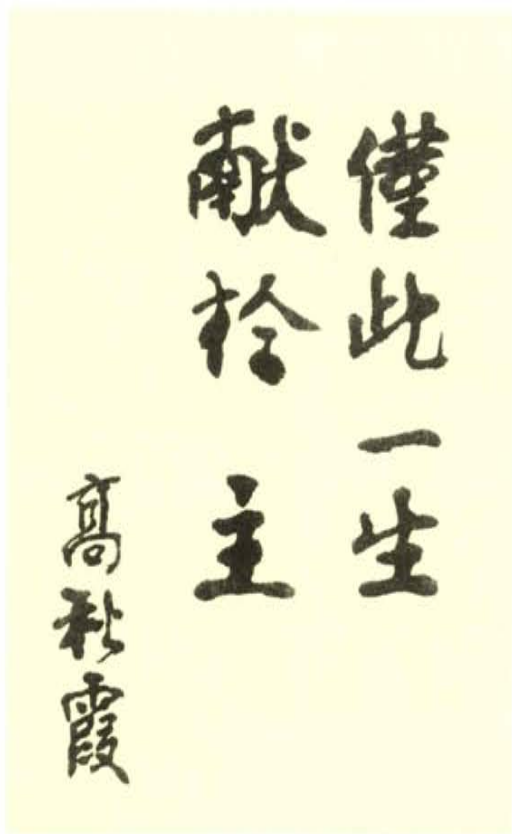 僅此一生
献於 主
高秋霞